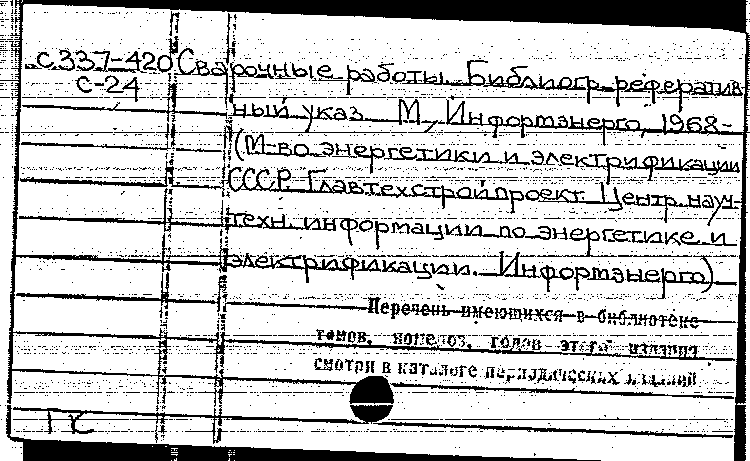 с.337-420 Сварочные работы. Библиогр. реферативный
с-24
ный указ. М., Информэнерго, 1968-
(М-во энергетики и электрификации
СССР. Главтехстройпроект. Центр. науч.-
техн. информации по энергетике и
электрификации. Информэнерго)
Перечень имеющихся в библиотеке
томов, номеров, годов этого издания
смотри в каталоге периодических изданий
ГК